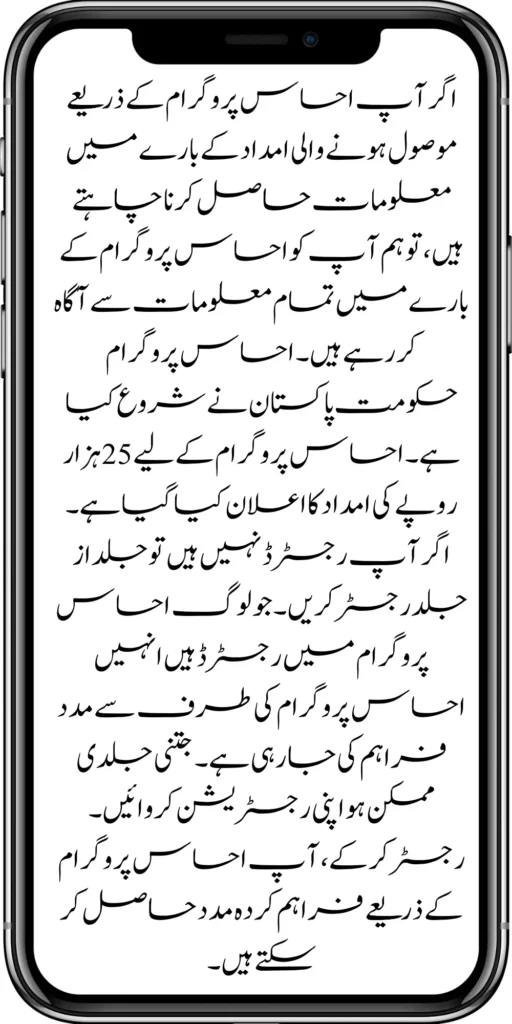 اگر آپ احساس پروگرام کے ذریعے
موصول ہونے والی امداد کے بارے میں
معلومات حاصل کرنا چاہتے
ہیں، تو ہم آپ کو احساس پروگرام کے
بارے میں تمام معلومات سے آگاہ
کر رہے ہیں۔ احساس پروگرام
حکومت پاکستان نے شروع کیا
ہے۔ احساس پروگرام کے لیے 25 ہزار
روپے کی امداد کا اعلان کیا گیا ہے۔
اگر آپ رجسٹرڈ نہیں ہیں تو جلد از
جلد رجسٹر کریں۔ جو لوگ احساس
پروگرام میں رجسٹرڈ ہیں انہیں
احساس پروگرام کی طرف سے مدد
فراہم کی جا رہی ہے۔ جتنی جلدی
ممکن ہو اپنی رجسٹریشن کروائیں۔
رجسٹر کر کے، آپ احساس پروگرام
کے ذریعے فراہم کردہ مدد حاصل کر
سکتے ہیں۔